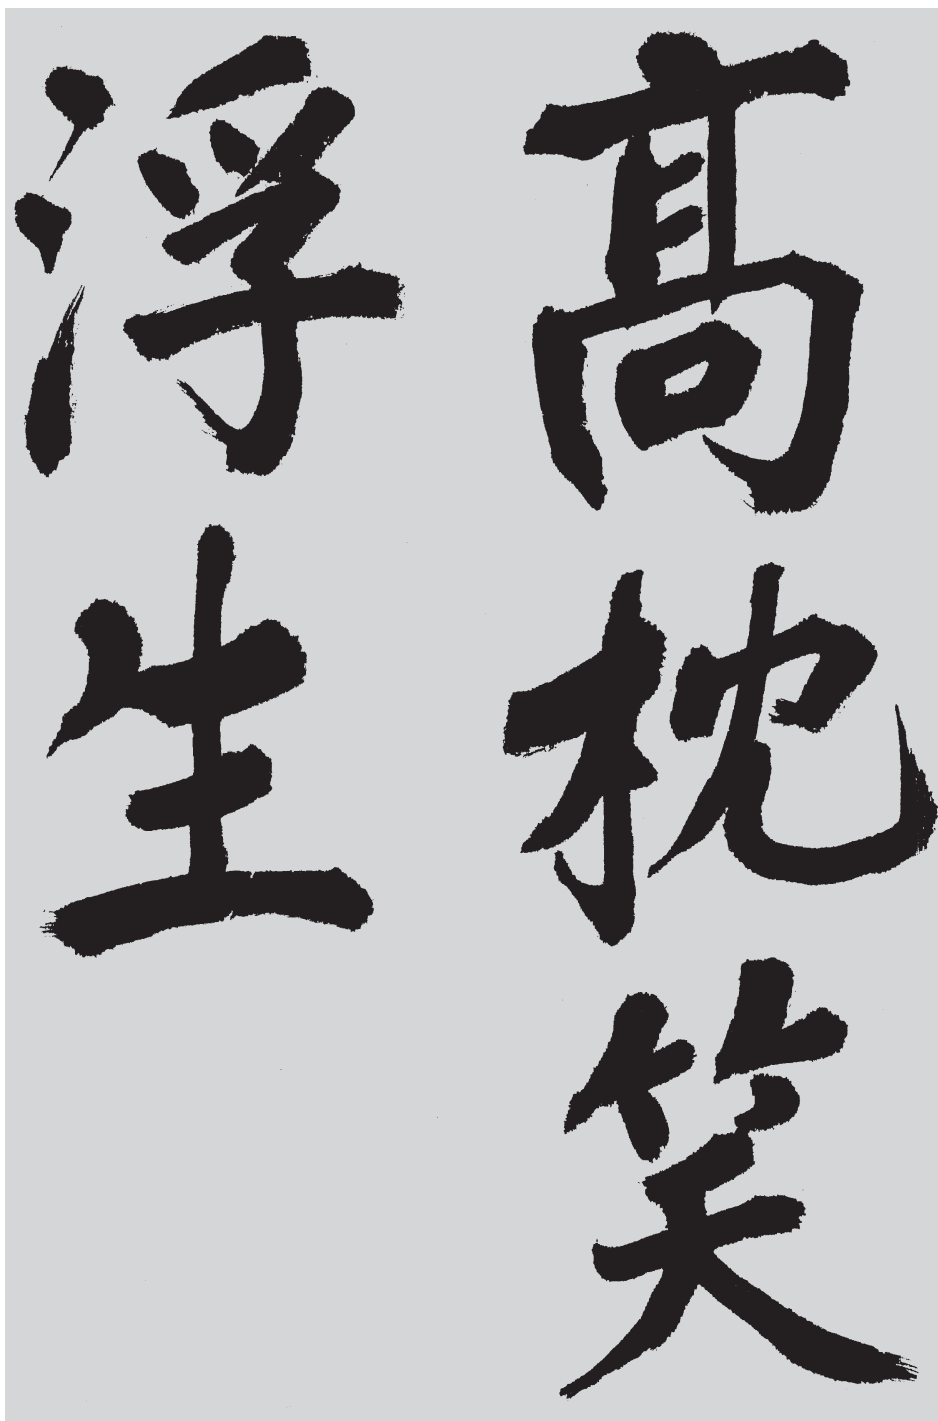 髙枕笑
浮生